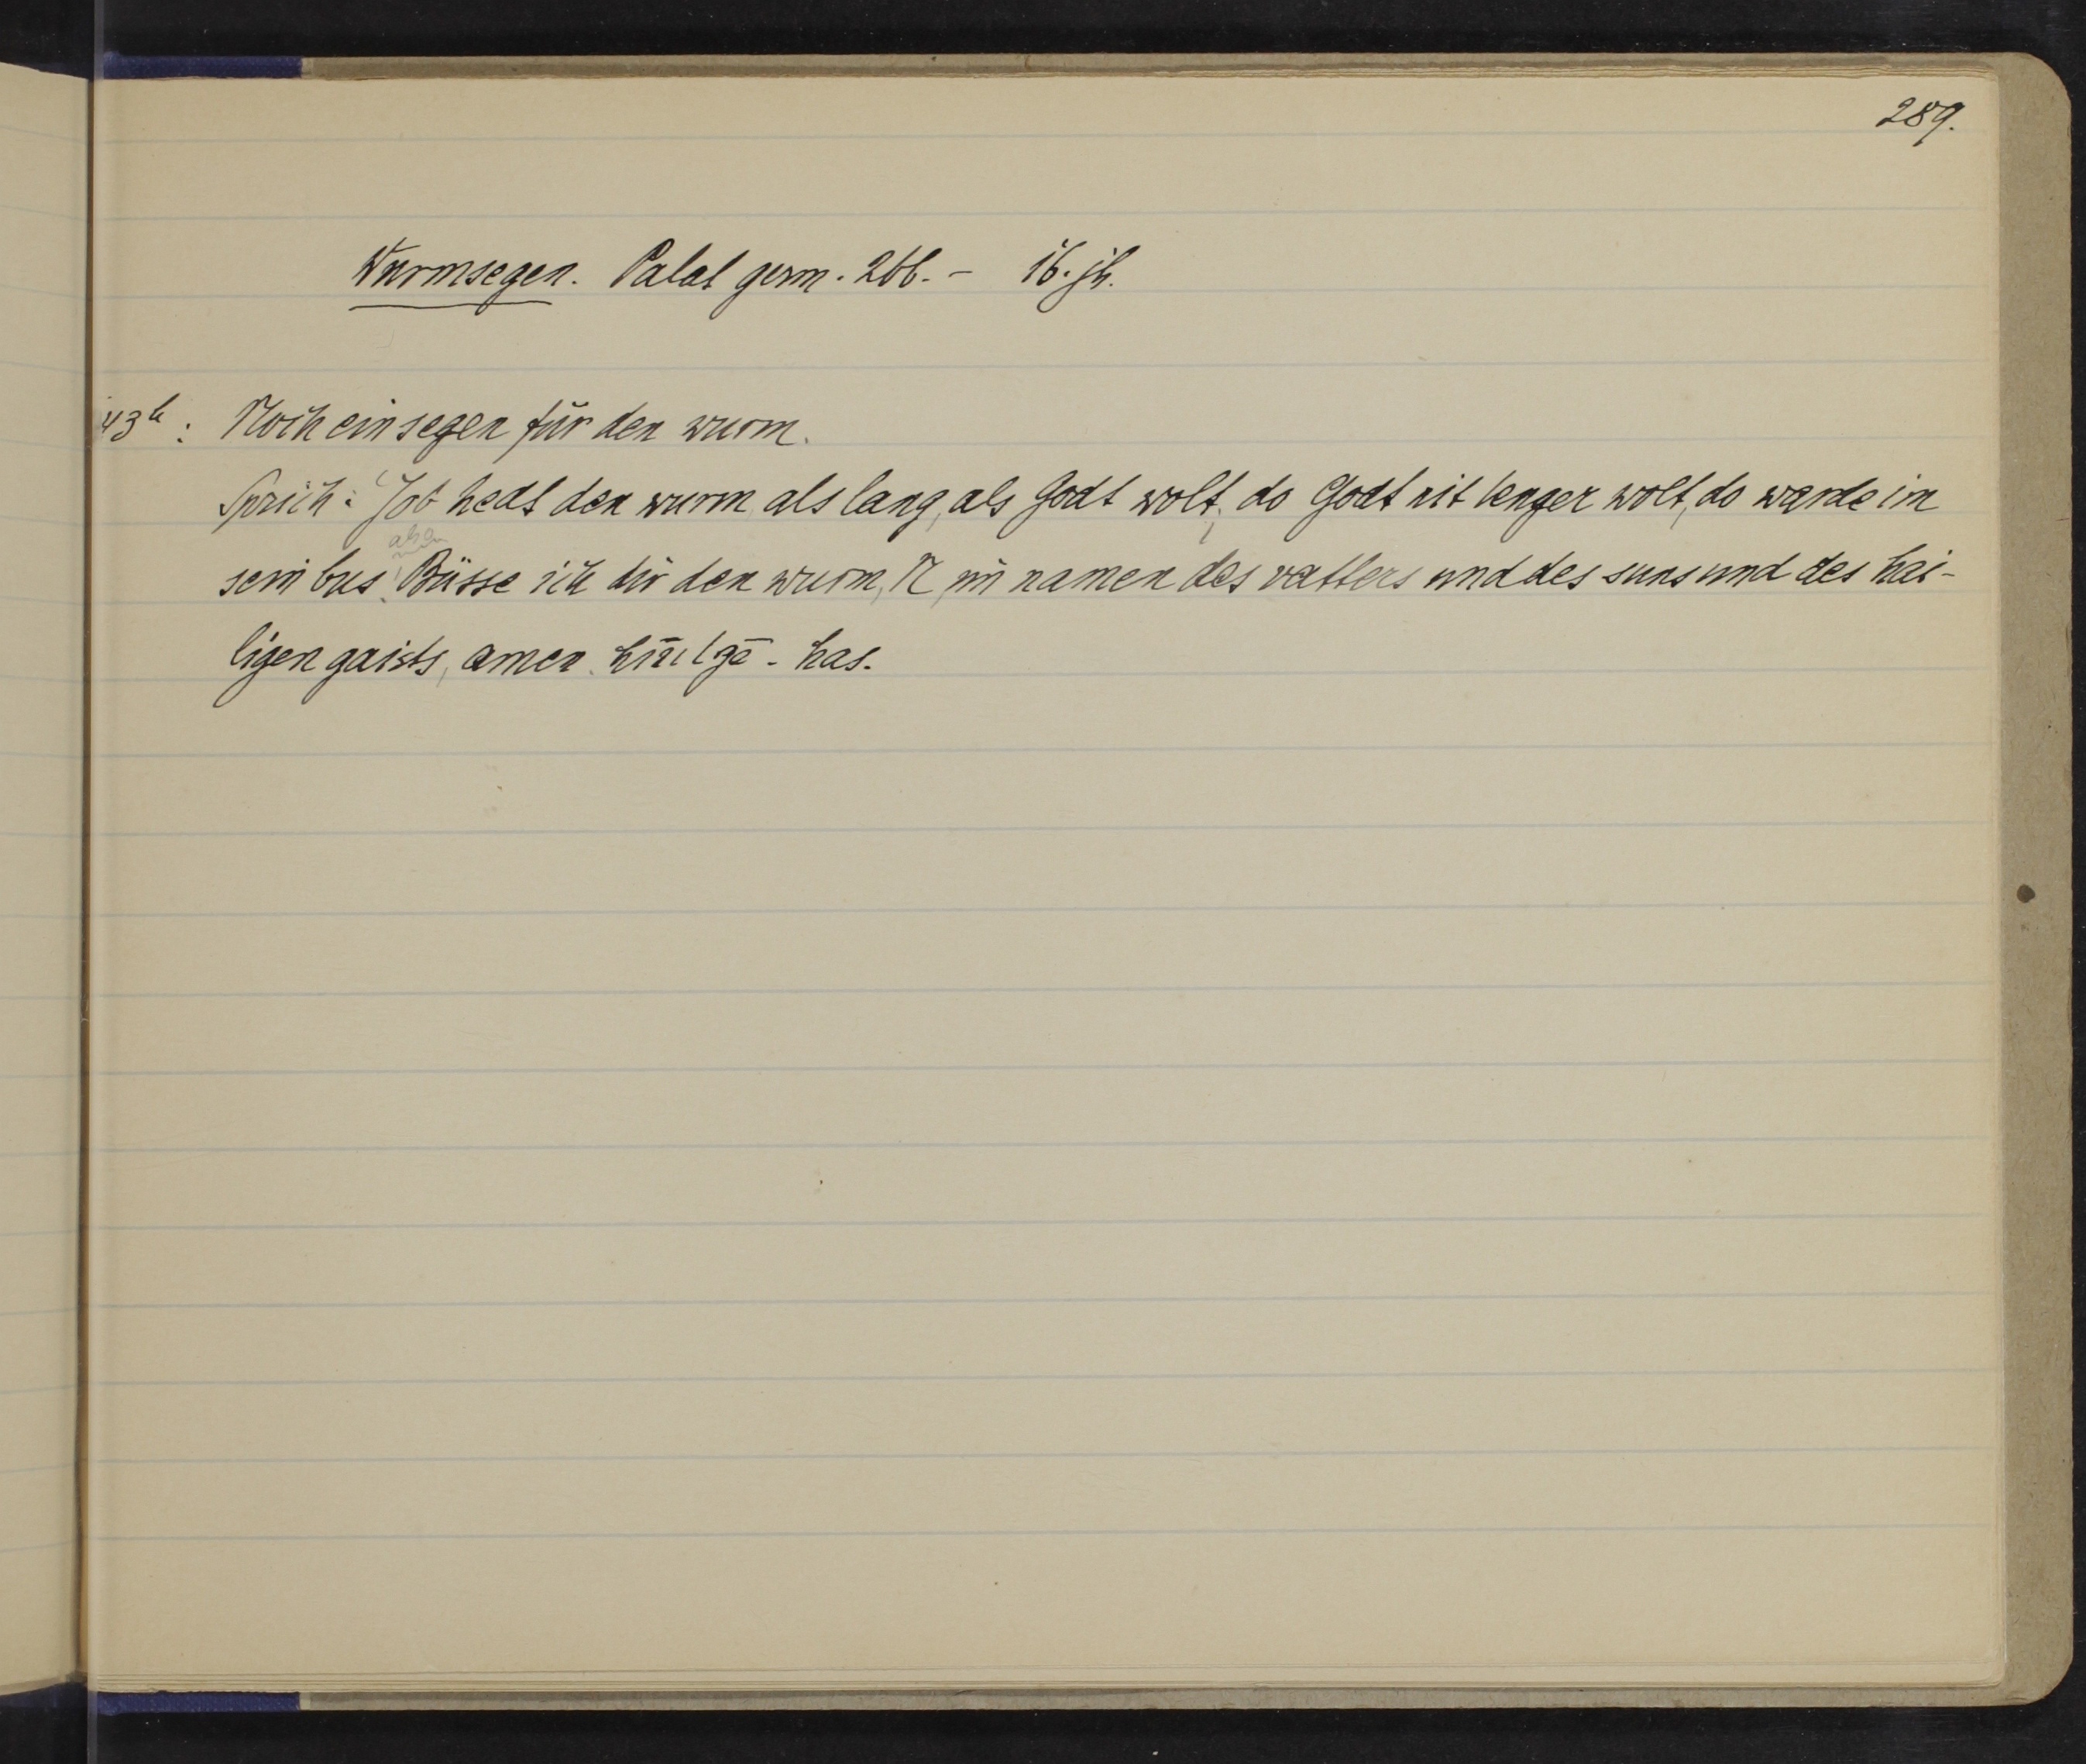 289.
Wurmsegen. Palat germ. 266. – 16. jh.
43b: Noch ein segen für den wurm.
Sprich: Job hedt den wurm als lang, als Godt wolt; do Godt nit lenger wolt, do warde im
sein bus. Büsse ich dir den wurm, N, im namen des vatters und des suns und des hai-
ligen gaists, amen.
has.